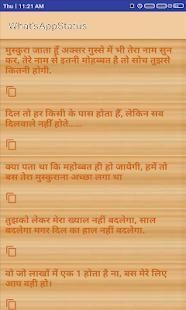 Thu | 11:21 AM
What'sAppStatus
मुस्कुरा जाता हूँ अक्सर गुस्से में भी तेरा नाम सुन
कर, तेरे नाम से इतनी मोहब्बत है तो सोच तुझसे
कितनी होगी.
दिल तो हर किसी के पास होता हैं, लेकिन सब
दिलवाले नहीं होते......
क्या पता था कि महोब्बत ही हो जायेगी, हमें तो
बस तेरा मुस्कुराना अच्छा लगा था
तुझको लेकर मेरा ख्याल नहीं बदलेगा, साल
बदलेगा मगर दिल का हाल नहीं बदलेगा.
वो जो लाखों में एक 1 होता है ना, बस मेरे लिए
आप वही हो।